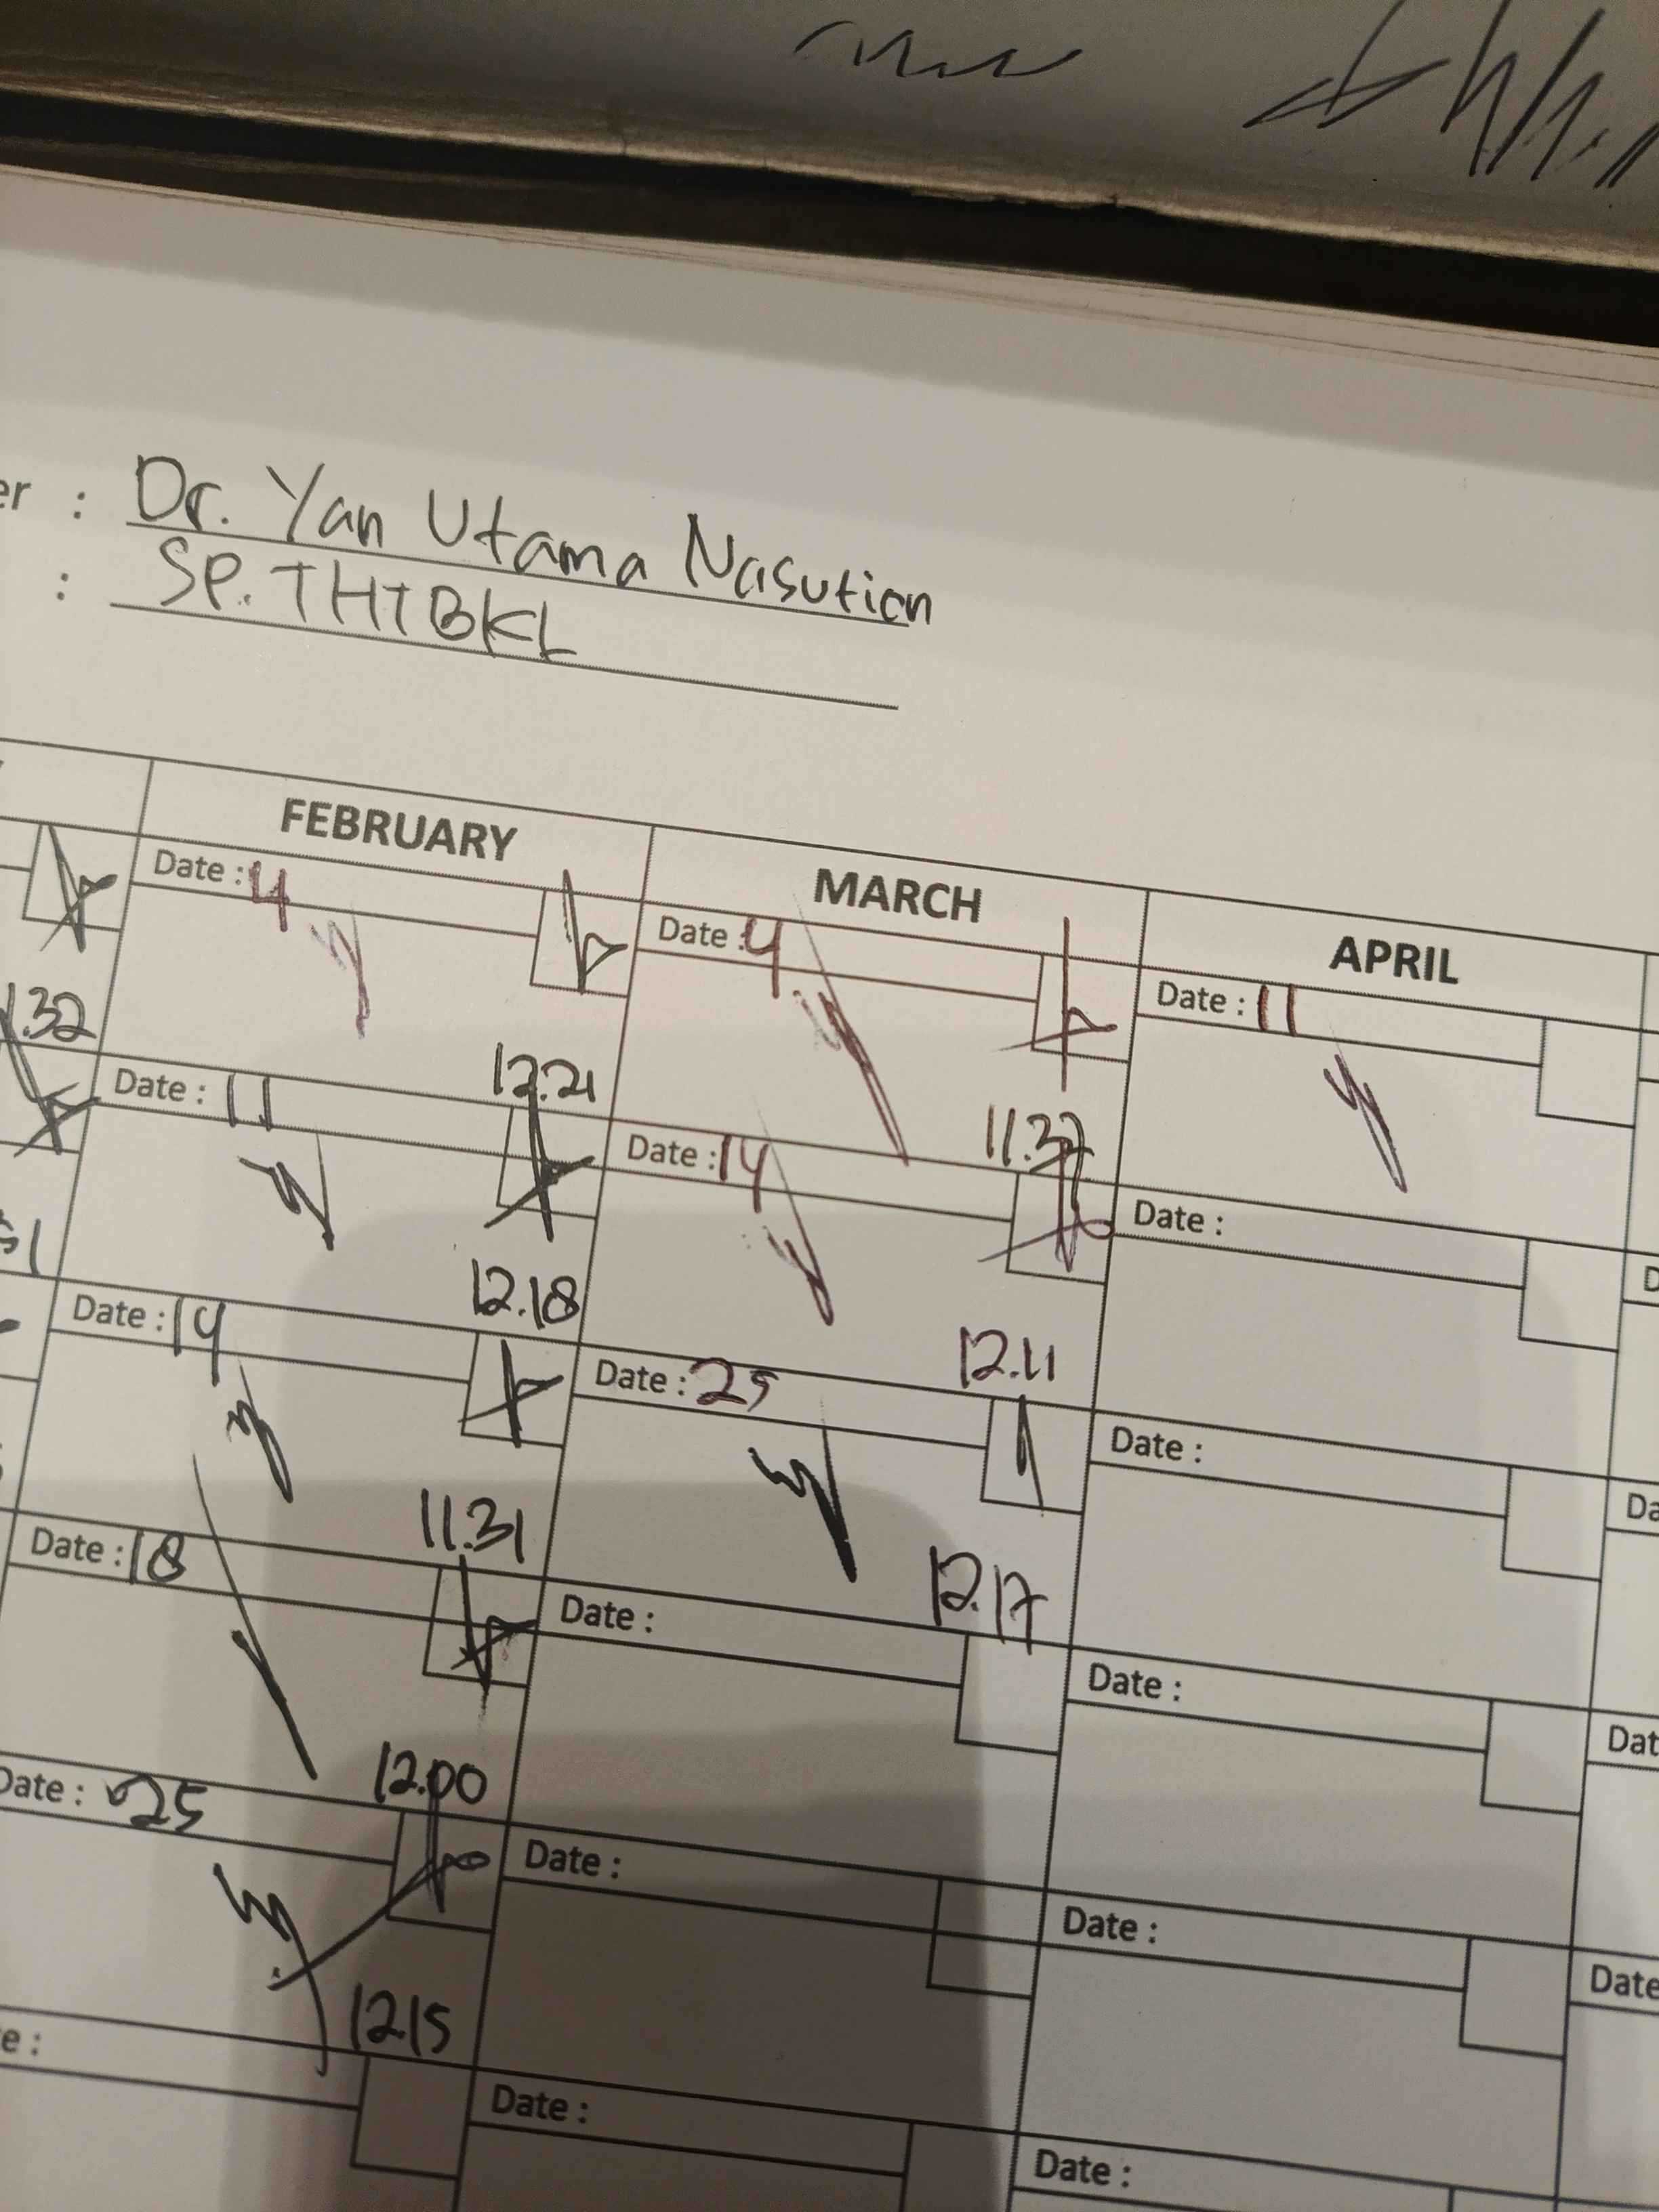 er : Dr. Yan Utama Nasution
: SP. THTBKL
FEBRUARY MARCH APRIL
Date : 4 Date : 4 Date : 11
.32 12.21 11.37
Date : 11 Date : 14 Date :
12.18 12.11
Date : 14 Date : 25 Date :
11.31 12.17
Date : 18 Date : Date :
12.00
Date : 25 Date : Date : Date
12.15
e : Date : Date :